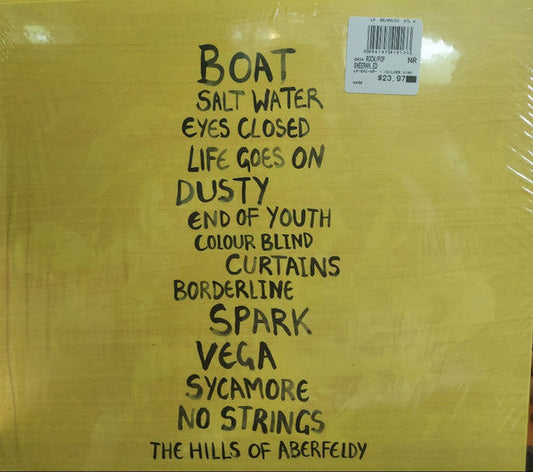 BOAT
SALT WATER
EYES CLOSED
LIFE GOES ON
DUSTY
END OF YOUTH
COLOUR BLIND
CURTAINS
BORDERLINE
SPARK
VEGA
SYCAMORE
NO STRINGS
THE HILLS OF ABERFELDY
LP
ROCK/POP NR
SHEERAN,ED
$23.97